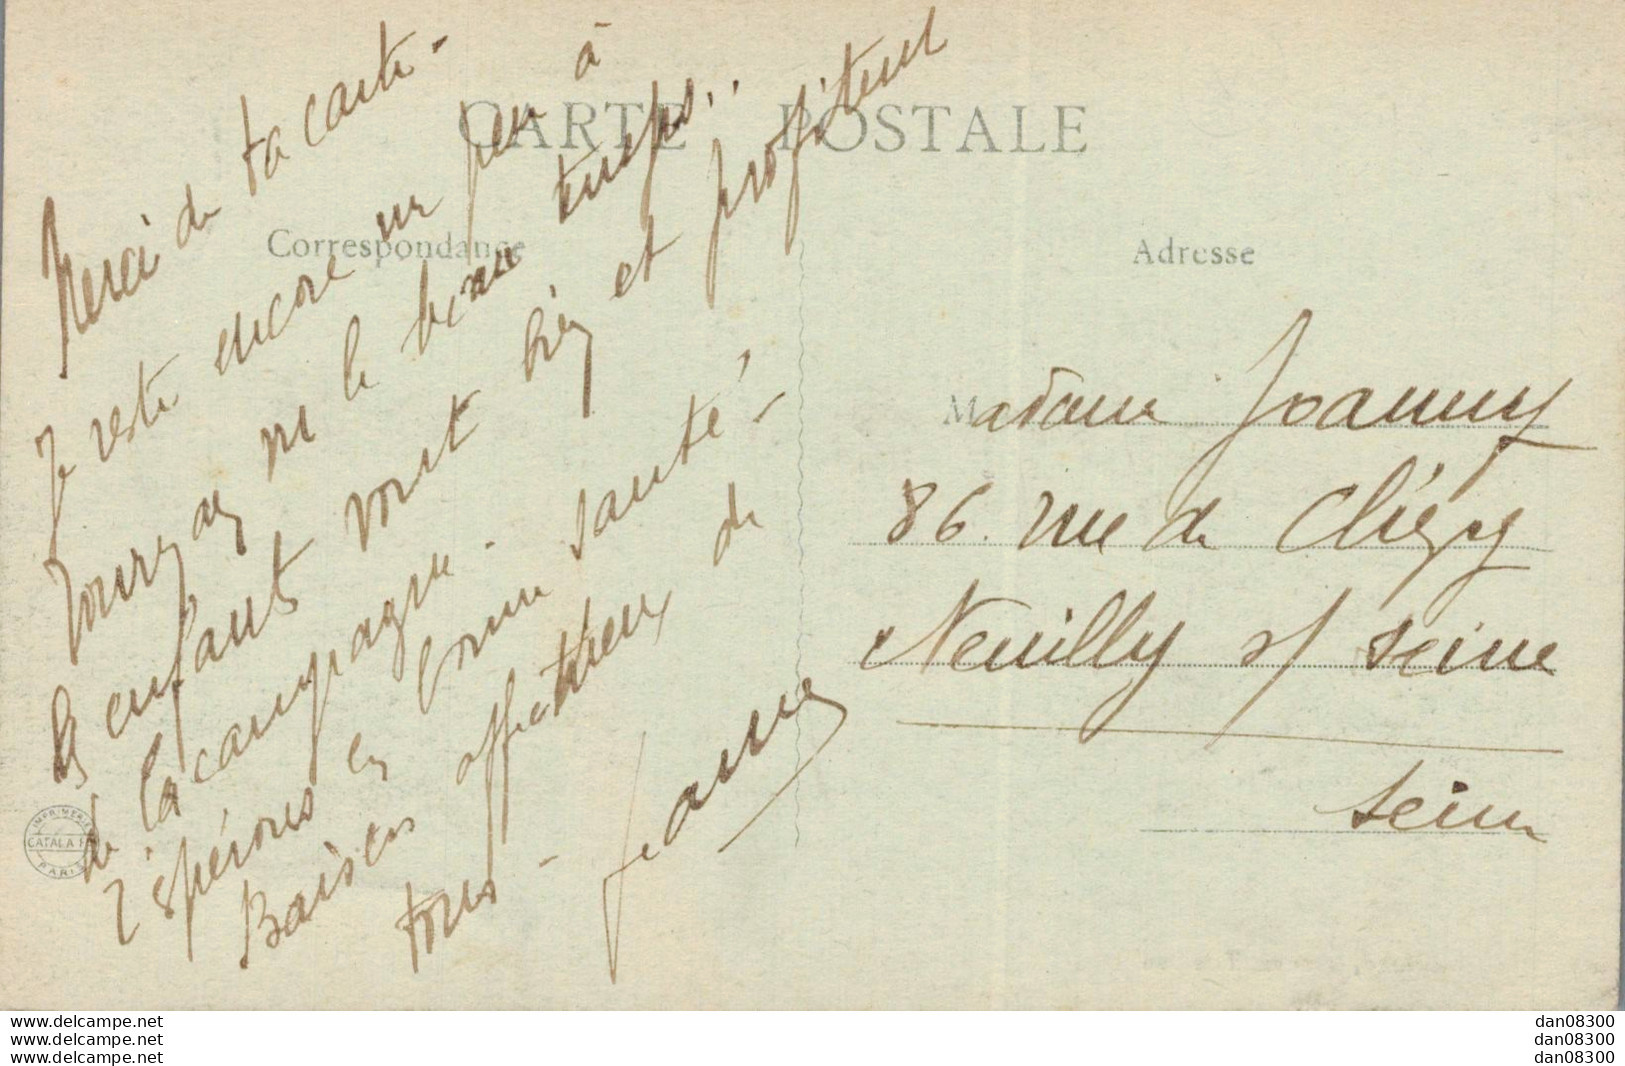 CARTE POSTALE
Correspondance
Adresse
Merci de ta carte -
Je reste encore un peu à
Tournay vu le beau temps..
les enfants vont bien et profitent
de la campagne -
J'espérons en bonne santé -
Baisers affectueux de
tous - Jeanne
Madame Joanny
86 rue de Chézy
Neuilly s/ Seine
Seine
IMPRIMERIE
CATALA F
PARIS
www.delcampe.net
www.delcampe.net
www.delcampe.net
dan08300
dan08300
dan08300